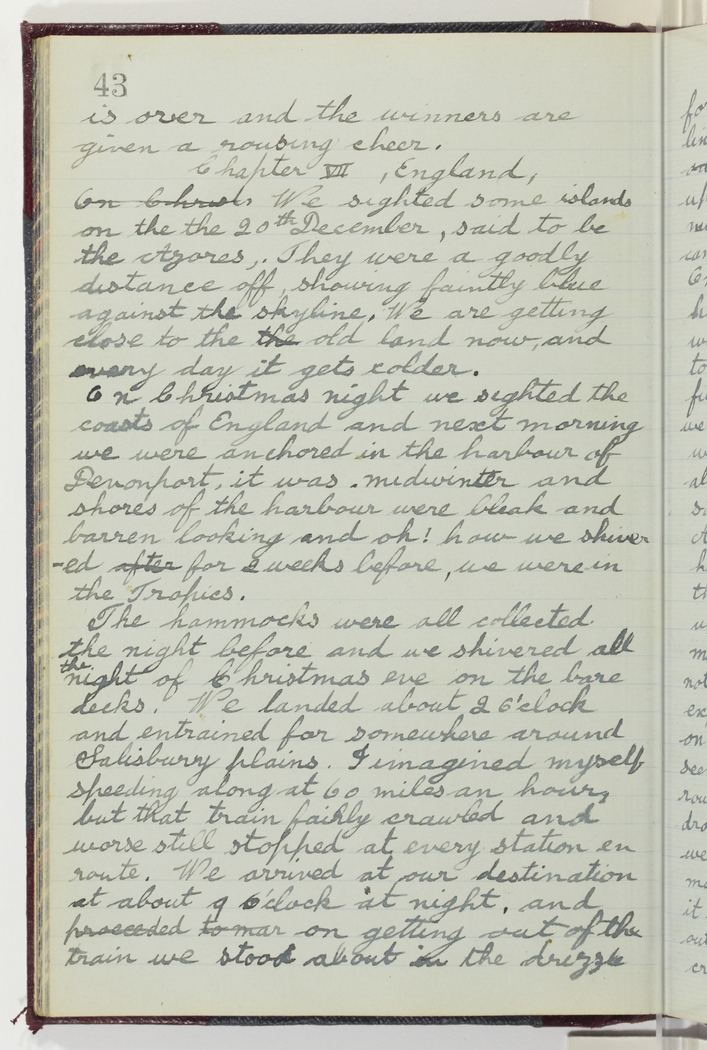 43
is over and the winners are
given a rousing cheer.
Chapter VII , England,
On Christ. We sighted some islands
on the the 20th December, said to be
the Azores,. They were a goodly
distance off, showing faintly blue
against the skyline. We are getting
close to the the old land now, and
every day it gets colder.
On Christmas night we sighted the
coasts of England and next morning
we were anchored in the harbour of
Devonport, it was midwinter and
shores of the harbour were bleak and
barren looking and oh! how we shiver
-ed after for 2 weeks before, we were in
the Tropics.
The hammocks were all collected
the night before and we shivered all
the night of Christmas eve on the bare
decks. We landed about 2 o'clock
and entrained for somewhere around
Salisburry plains. I imagined myself
speeding along at 60 miles an hour,
but that train fairly crawled and
worse still stopped at every station en
route. We arrived at our destination
at about 9 o'clock at night, and
proceeded to mar on getting out of the
train we stood about in the drizzle